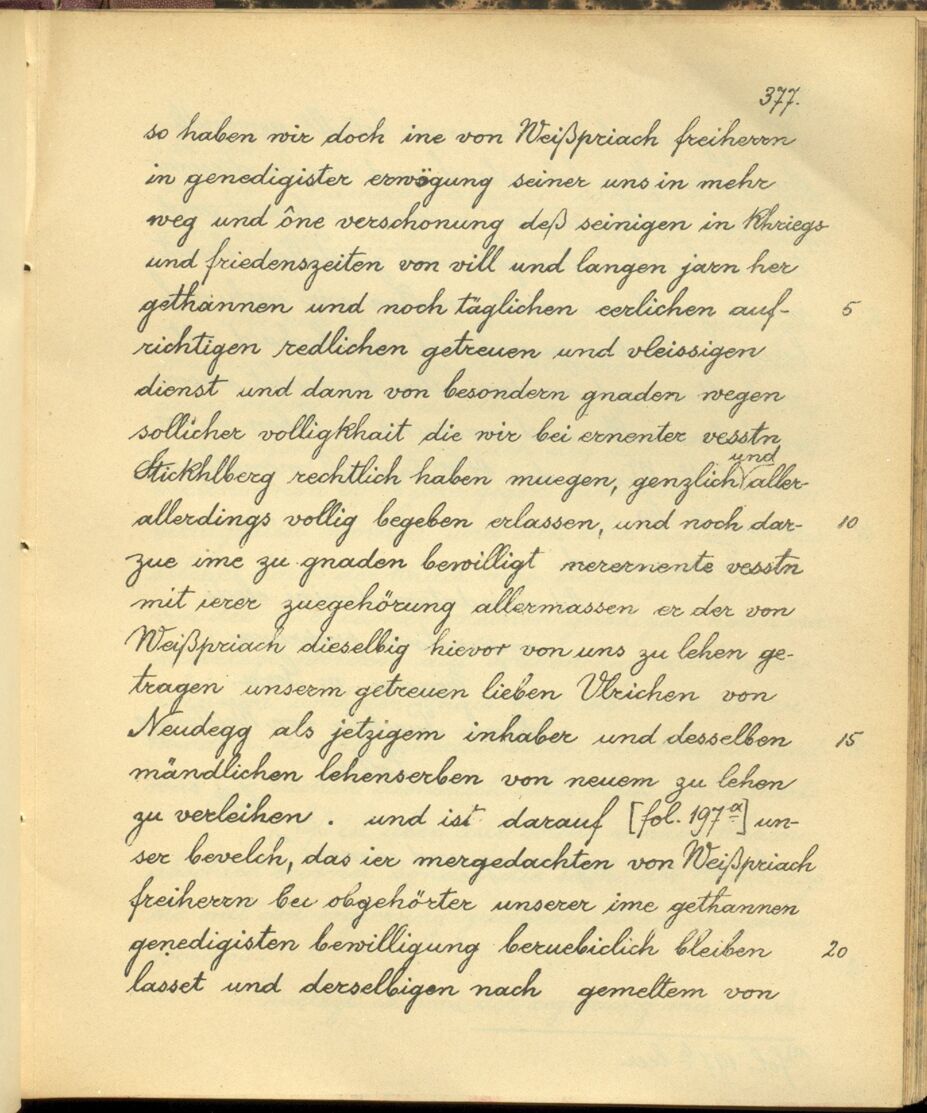 377.
so haben wir doch ine von Weißpriach freiherrn
in genedigister erwögung seiner uns in mehr
weg und ône verschonung deß seinigen in Khriegs
und friedenszeiten von vill und langen jarn her
gethannen und noch täglichen eerlichen auf- 5
richtigen redlichen getreuen und vleissigen
dienst und dann von besondern gnaden wegen
sollicher volligkhait die wir bei ernenter vesstn
und
Stickhlberg rechtlich haben muegen, genzlich aller-
allerdings vollig begeben erlassen, und noch dar- 10
zue ime zu gnaden bewilligt merernente vesstn
mit ierer zuegehörung allermassen er der von
Weißpriach dieselbig hievor von uns zu lehen ge-
tragen unserm getreuen lieben Ulrichen von
Neudegg als jetzigem inhaber und desselben 15
mändlichen lehenserben von neuem zu lehen
zu verleihen. und ist darauf [fol. 197a] un-
ser bevelch, das ier mergedachten von Weißpriach
freiherrn bei obgehörter unserer ime gethannen
genedigisten bewilligung beruebiclich bleiben 20
lasset und derselbigen nach gemeltem von